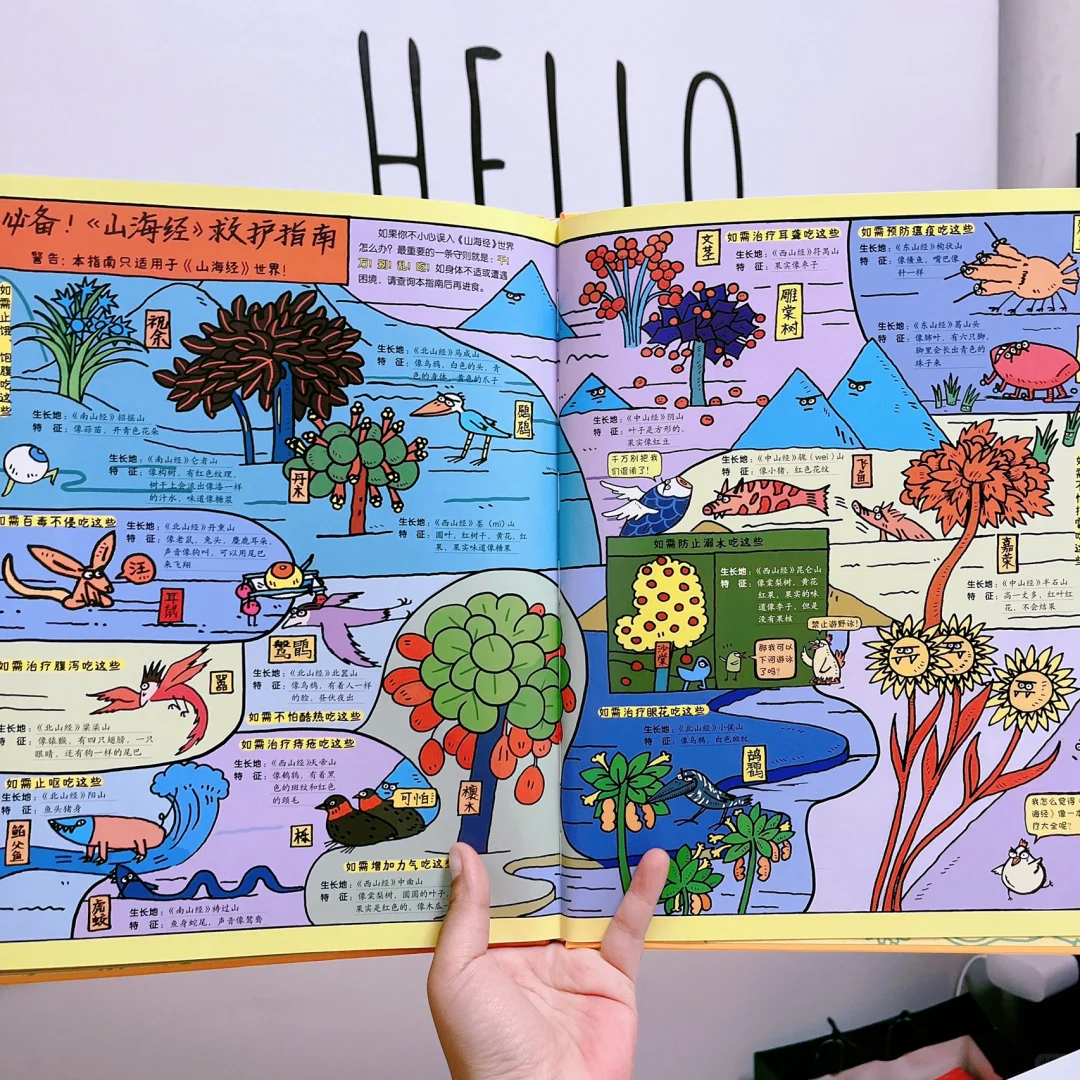 HELLO
必备！《山海经》救护指南
警告：本指南只适用于《山海经》世界！
如果你不小心误入《山海经》世界
怎么办？最重要的一条守则就是：千
万！别！乱！吃！如身体不适或遭遇
困境，请查询本指南后再进食。
如需止饿 饱腹吃这些
祝余
生长地：《南山经》招摇山
特 征：像韭苗，开青色花朵
生长地：《南山经》仑者山
特 征：像构树，有红色纹理，
树干上会流出像漆一样
的汁水，味道像糖浆
生长地：《北山经》马成山
特 征：像乌鸦，白色的头，青
色的身体，黄色的爪子
丹木
生长地：《西山经》峚（mì）山
特 征：圆叶，红树干，黄花，红
果，果实味道像糖果
如需百毒不侵吃这些
生长地：《北山经》丹熏山
特 征：像老鼠，兔头，麋鹿耳朵，
声音像狗叫，可以用尾巴
来飞翔
汪
耳鼠
生长地：《北山经》北嚣山
特 征：像乌鸦，有着人一样
的脸，昼伏夜出
如需不怕酷热吃这些
如需治疗腹泻吃这些
嚣
生长地：《北山经》梁渠山
特 征：像猿猴，有四只翅膀，一只
眼睛，还有狗一样的尾巴
如需治疗痔疮吃这些
生长地：《西山经》天帝山
特 征：像鹌鹑，有着黑
色的斑纹和红色
的颈毛
可怕
栎
如需止呕吃这些
生长地：《北山经》阳山
特 征：鱼头猪身
虎蛟
生长地：《南山经》祷过山
特 征：鱼身蛇尾，声音像鸳鸯
櫰木
如需增加力气吃这些
生长地：《西山经》中曲山
特 征：像棠梨树，圆圆的叶子，
果实是红色的，像木瓜一
文茎
如需治疗耳聋吃这些
生长地：《西山经》符禺山
特 征：果实像枣子
雕棠树
生长地：《中山经》阴山
特 征：叶子是方形的，
果实像红豆
如需预防瘟疫吃这些
生长地：《东山经》枸状山
特 征：像鯈鱼，嘴巴像
针一样
生长地：《东山经》葛山头
特 征：像肺叶，有六只脚，
脚里会长出青色的
珠子来
千万别把我
们混淆了！
生长地：《中山经》騩（wei）山
特 征：像小猪，红色花纹
飞鱼
嘉荣
生长地：《中山经》半石山
特 征：高一丈多，红叶红
花，不会结果
如需防止溺水吃这些
生长地：《西山经》昆仑山
特 征：像棠梨树，黄花
红果，果实的味
道像李子，但是
没有果核
沙棠
那我可以
下河游泳
了吗？
禁止游野泳！
如需治疗眼花吃这些
生长地：《北山经》小侯山
特 征：像乌鸦，白色斑纹
鸪鹠
我怎么觉得
海经》像一本
疗大全呢？